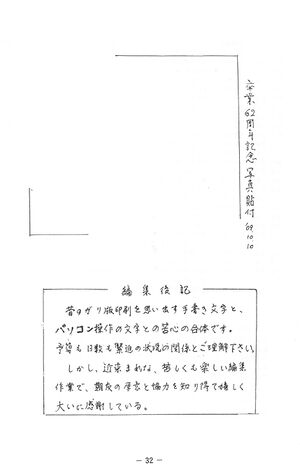 卒業62周年記念 写真貼付 '03 10 10
編集後記
昔のガリ版印刷を思い出す手書き文字と、
パソコン操作の文字との苦心の合体です。
予算も日数も緊迫の状況の関係とご理解下さい。
しかし、近来まれな、苦しくも楽しい編集
作業で、期友の厚志と協力を知り得て嬉しく
大いに感謝している。
— 32 —